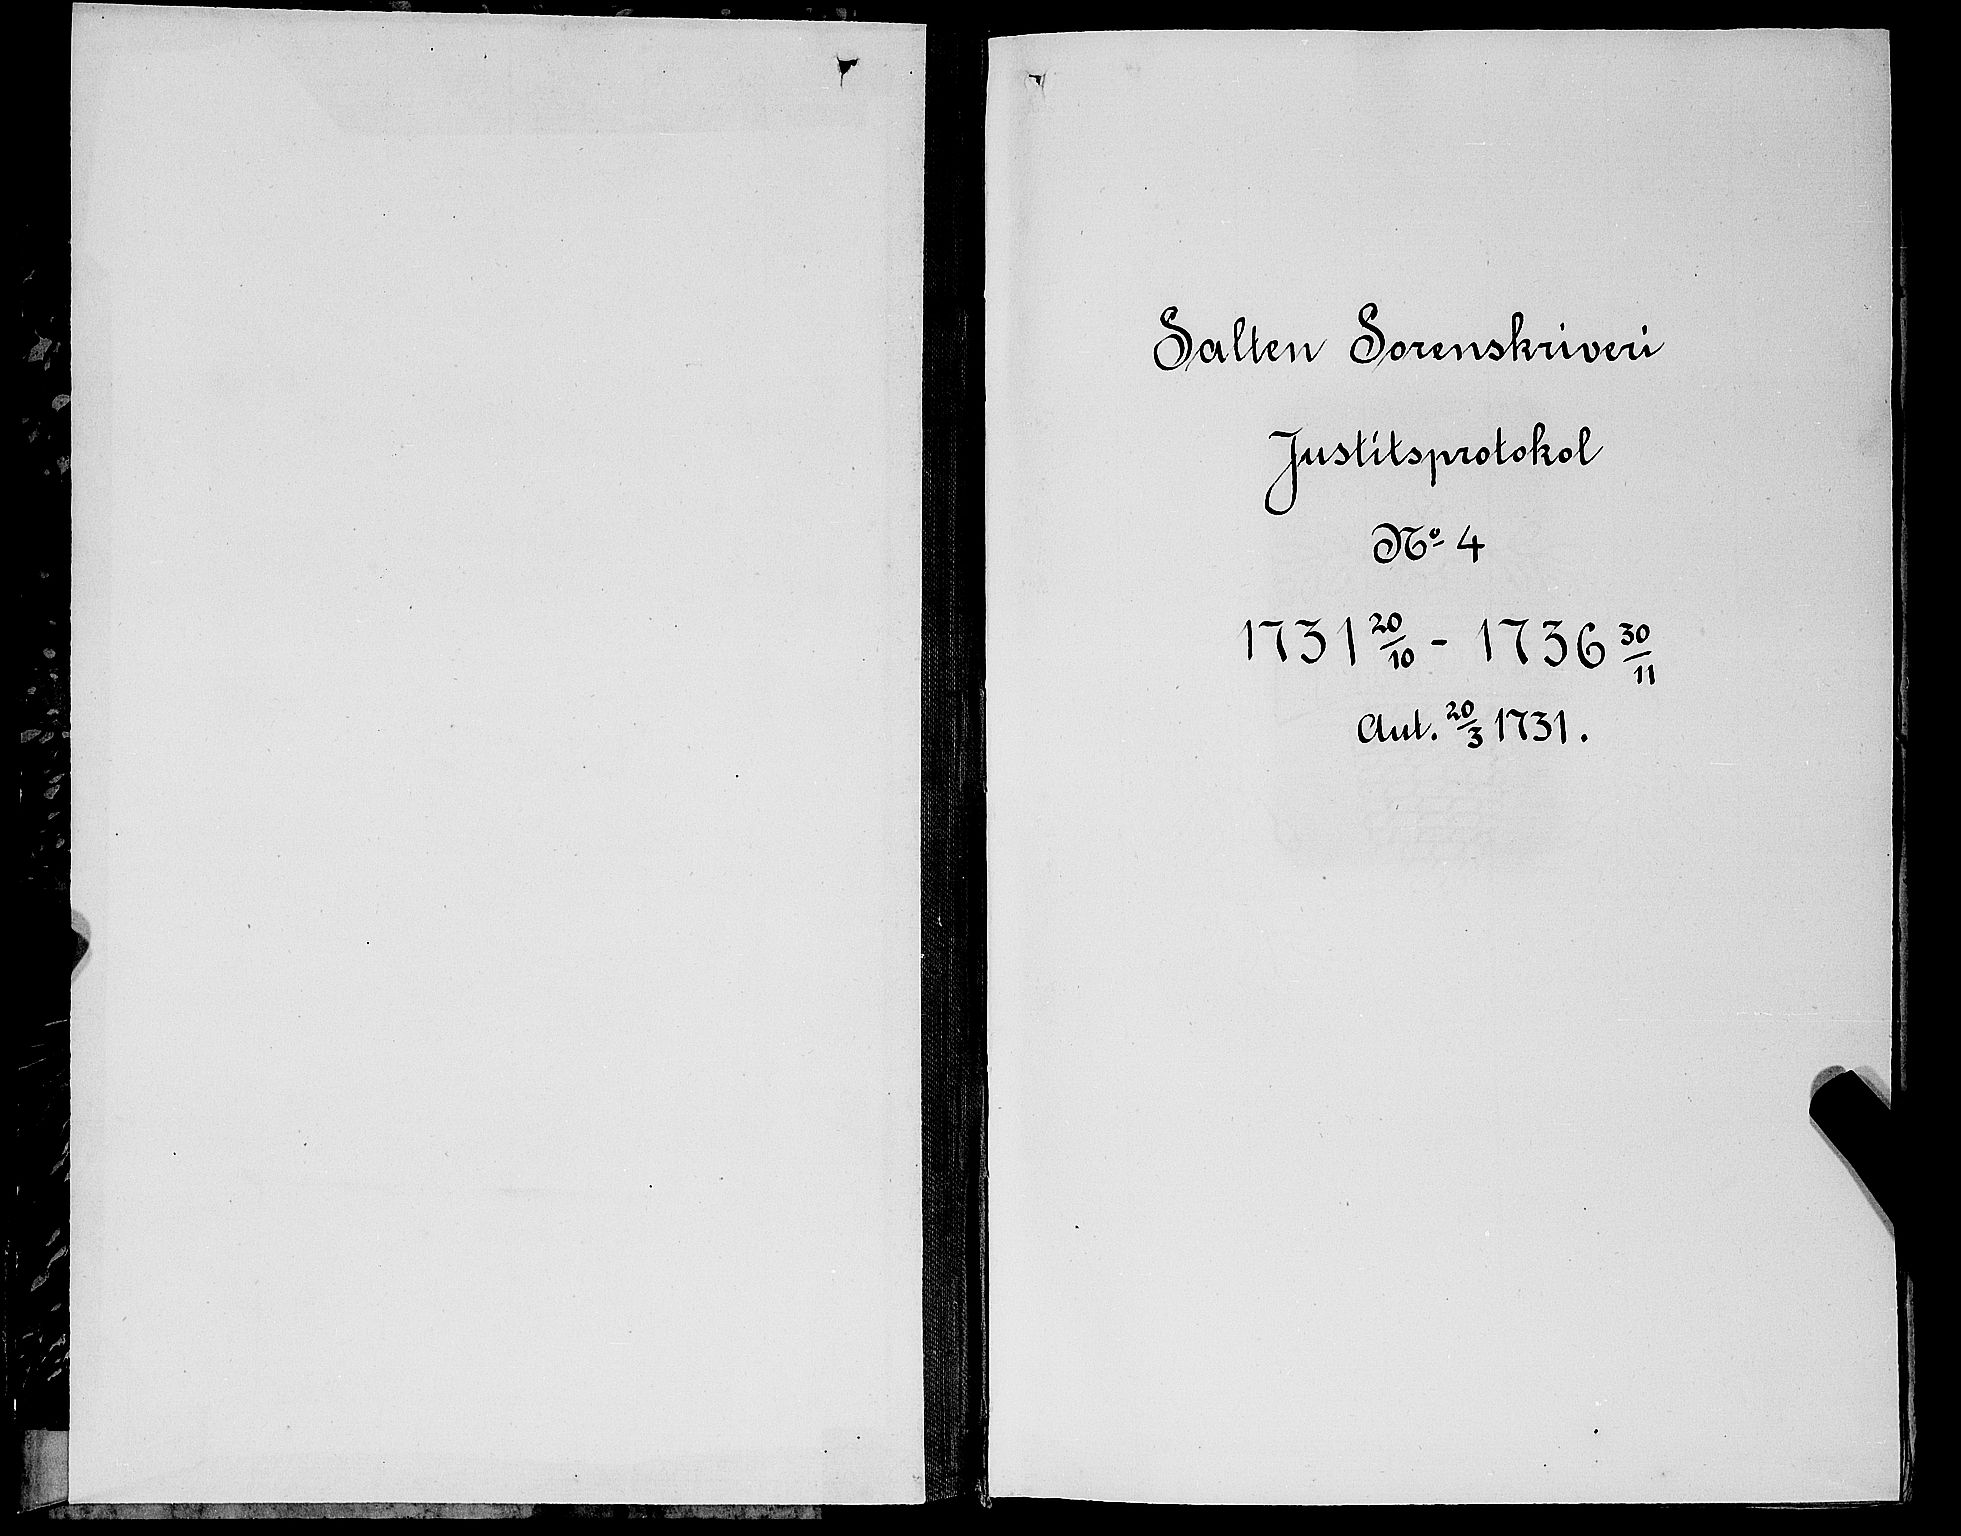 Salten Sorenskriveri
Justitsprotokol
Nº 4
1731 20/10 - 1736 30/11
Aut. 20/3 1731.